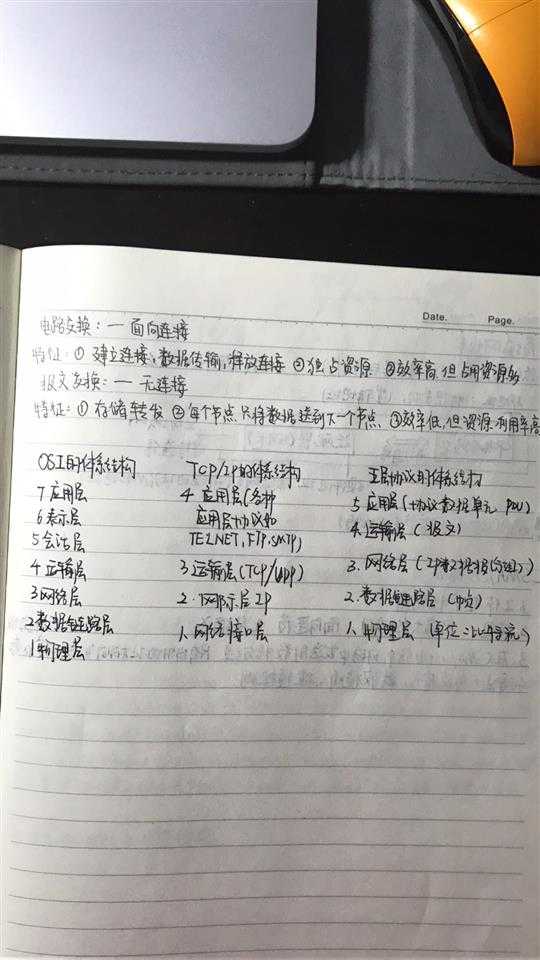 Date.  Page.
电路交换：— 面向连接
特征：① 建立连接，数据传输，释放连接 ② 独占资源 ③ 效率高 但占用资源多
报文交换：— 无连接
特征：① 存储转发 ② 每个节点只将数据送到下一个节点 ③ 效率低，但资源利用率高
OSI的体系结构  TCP/IP的体系结构  五层协议的体系结构
7 应用层  4 应用层(各种  5 应用层(协议数据单元 PDU)
6 表示层  应用层协议如  4. 运输层(报文)
5 会话层  TELNET, FTP, SMTP)
4 运输层  3 运输层(TCP/UDP)  3. 网络层(IP数据报(分组))
3 网络层  2. 网际层 IP  2. 数据链路层(帧)
2 数据链路层  1. 网络接口层  1. 物理层 (单位：比特流)
1 物理层